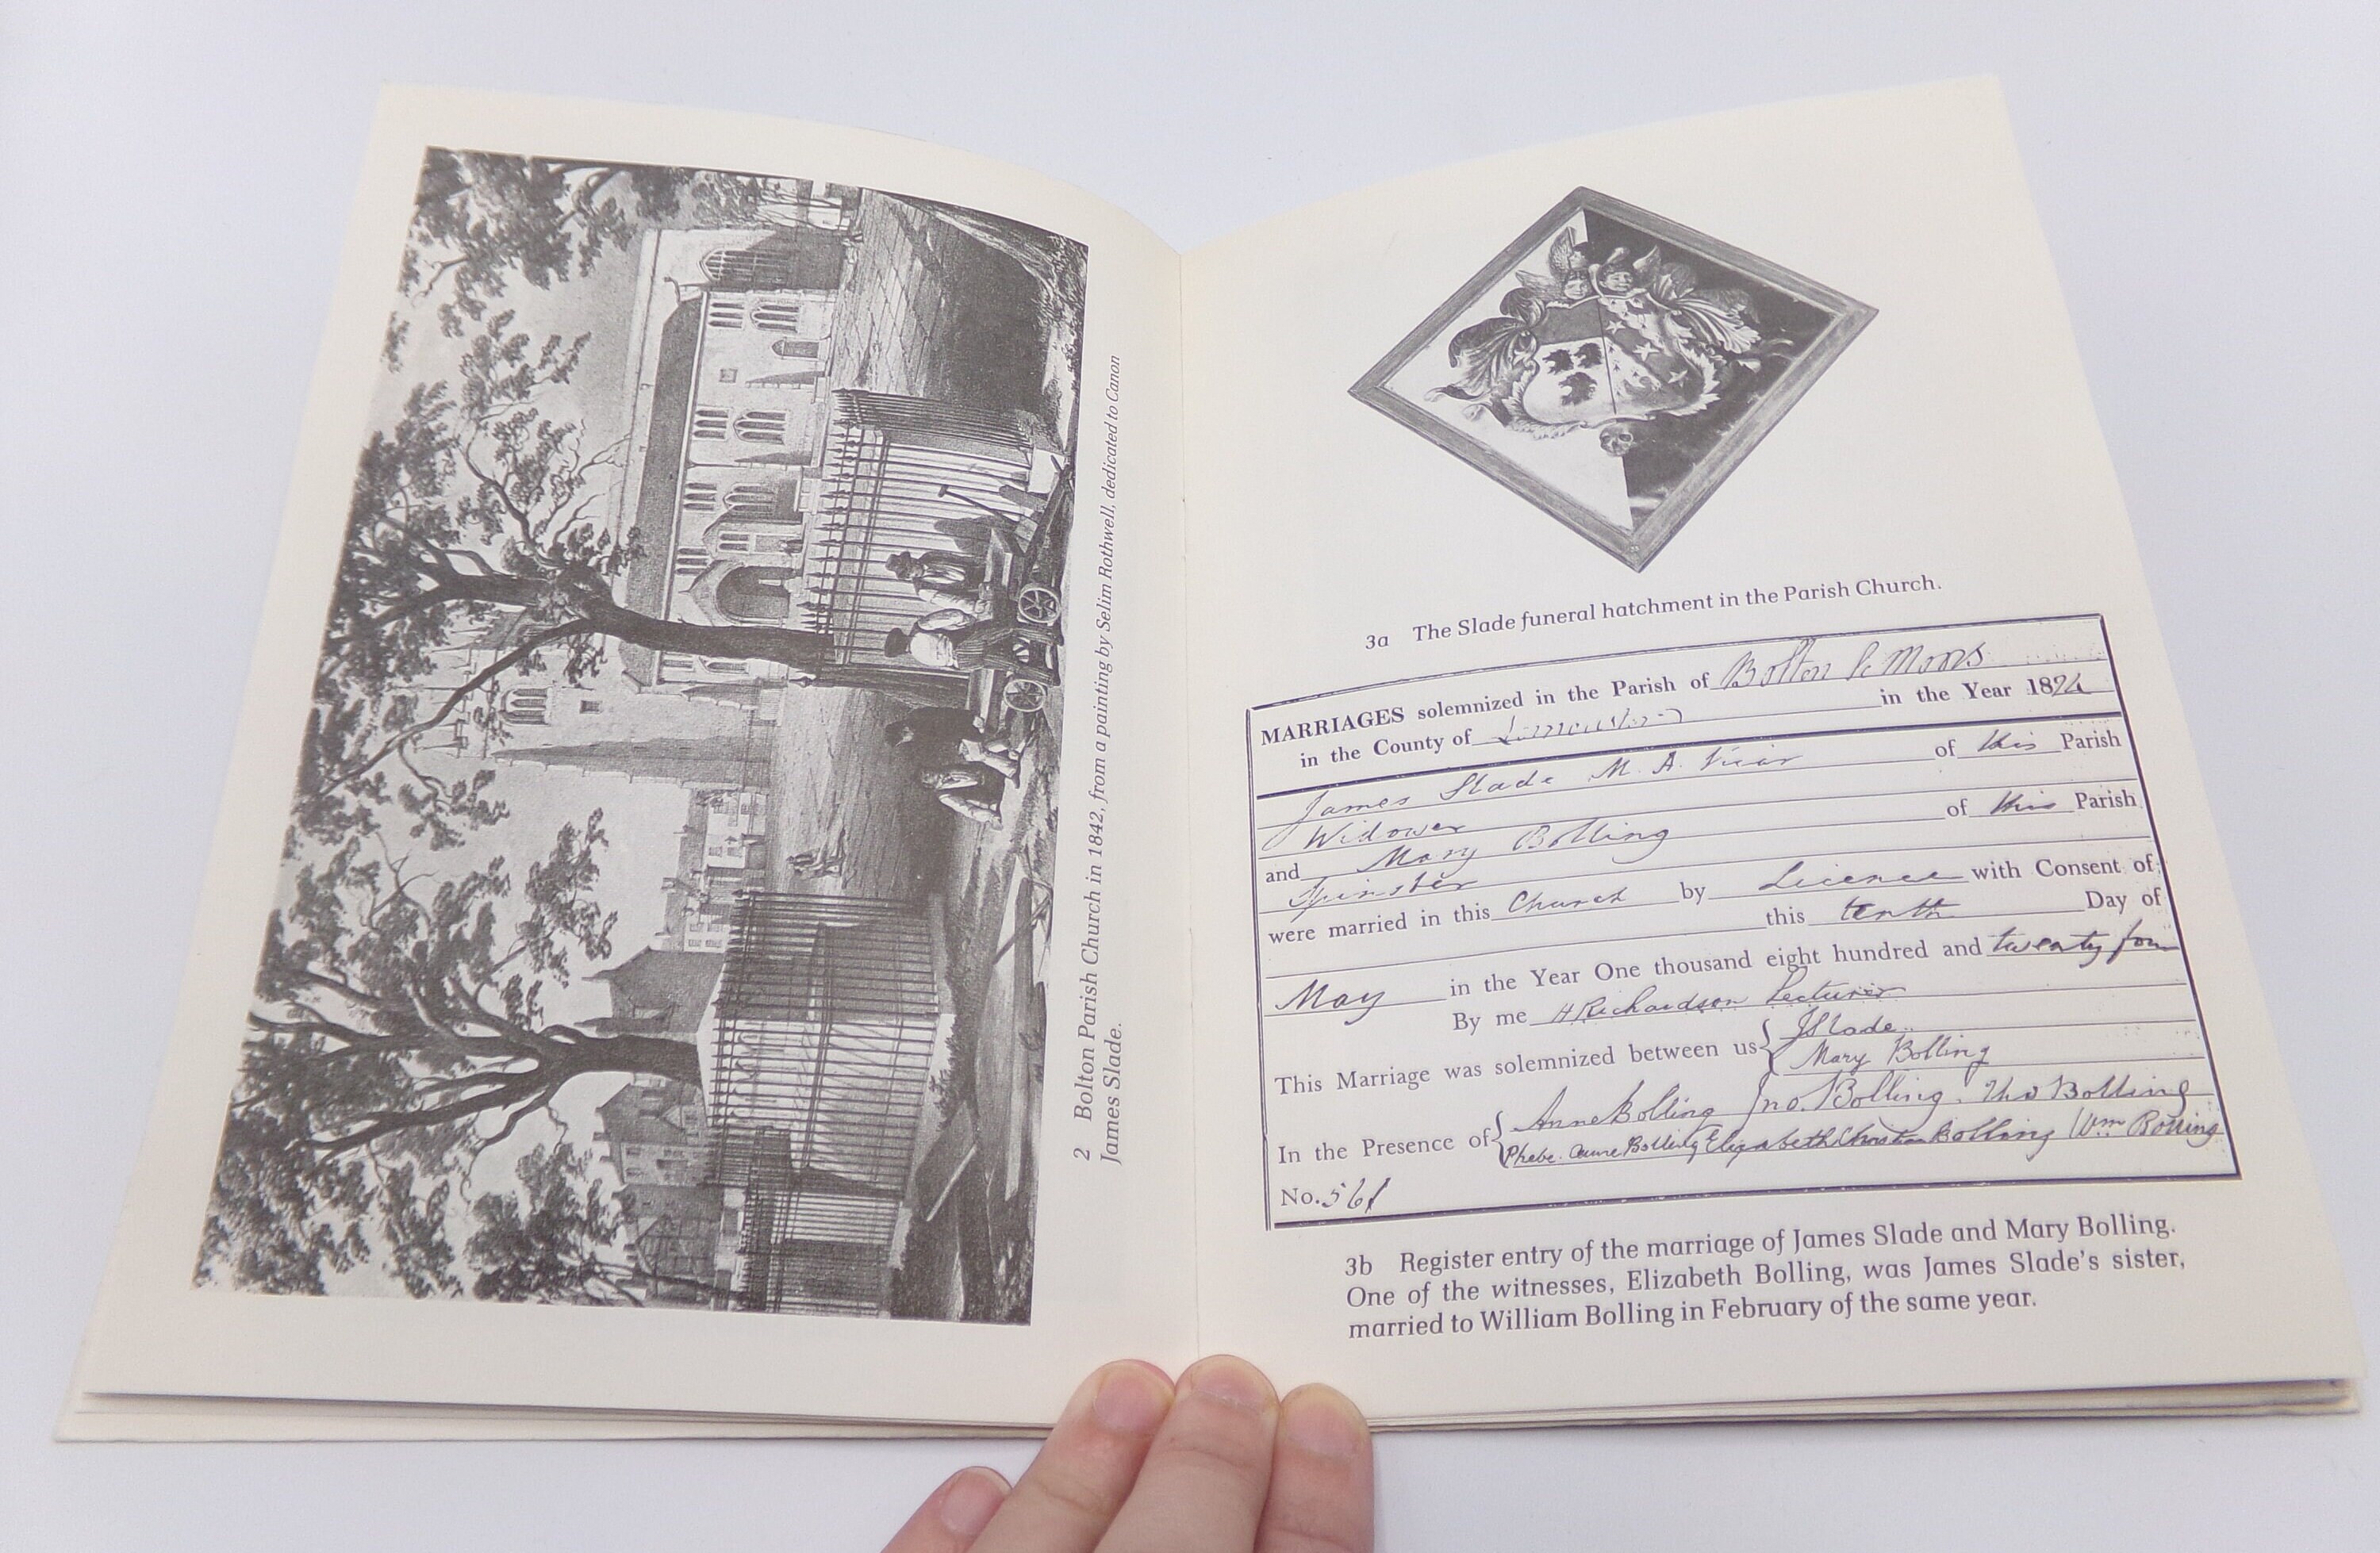 2 Bolton Parish Church in 1842, from a painting by Selim Rothwell, dedicated to Canon
James Slade.
3a The Slade funeral hatchment in the Parish Church.
MARRIAGES solemnized in the Parish of Bolton le Moors
in the County of in the Year 1824
James Slade M. A. Vicar of this Parish
Widower
and Mary Bolling of this Parish
Spinster
were married in this Church by Licence with Consent of
this tenth Day of
May in the Year One thousand eight hundred and twenty four
By me H Richardson Lecturer
This Marriage was solemnized between us { J Slade
Mary Bolling
In the Presence of { Anne Bolling Jno. Bolling. Tho Bolling
Phebe Anne Bolling Elizabeth Christian Bolling Wm Bolling
No. 561
3b Register entry of the marriage of James Slade and Mary Bolling.
One of the witnesses, Elizabeth Bolling, was James Slade's sister,
married to William Bolling in February of the same year.